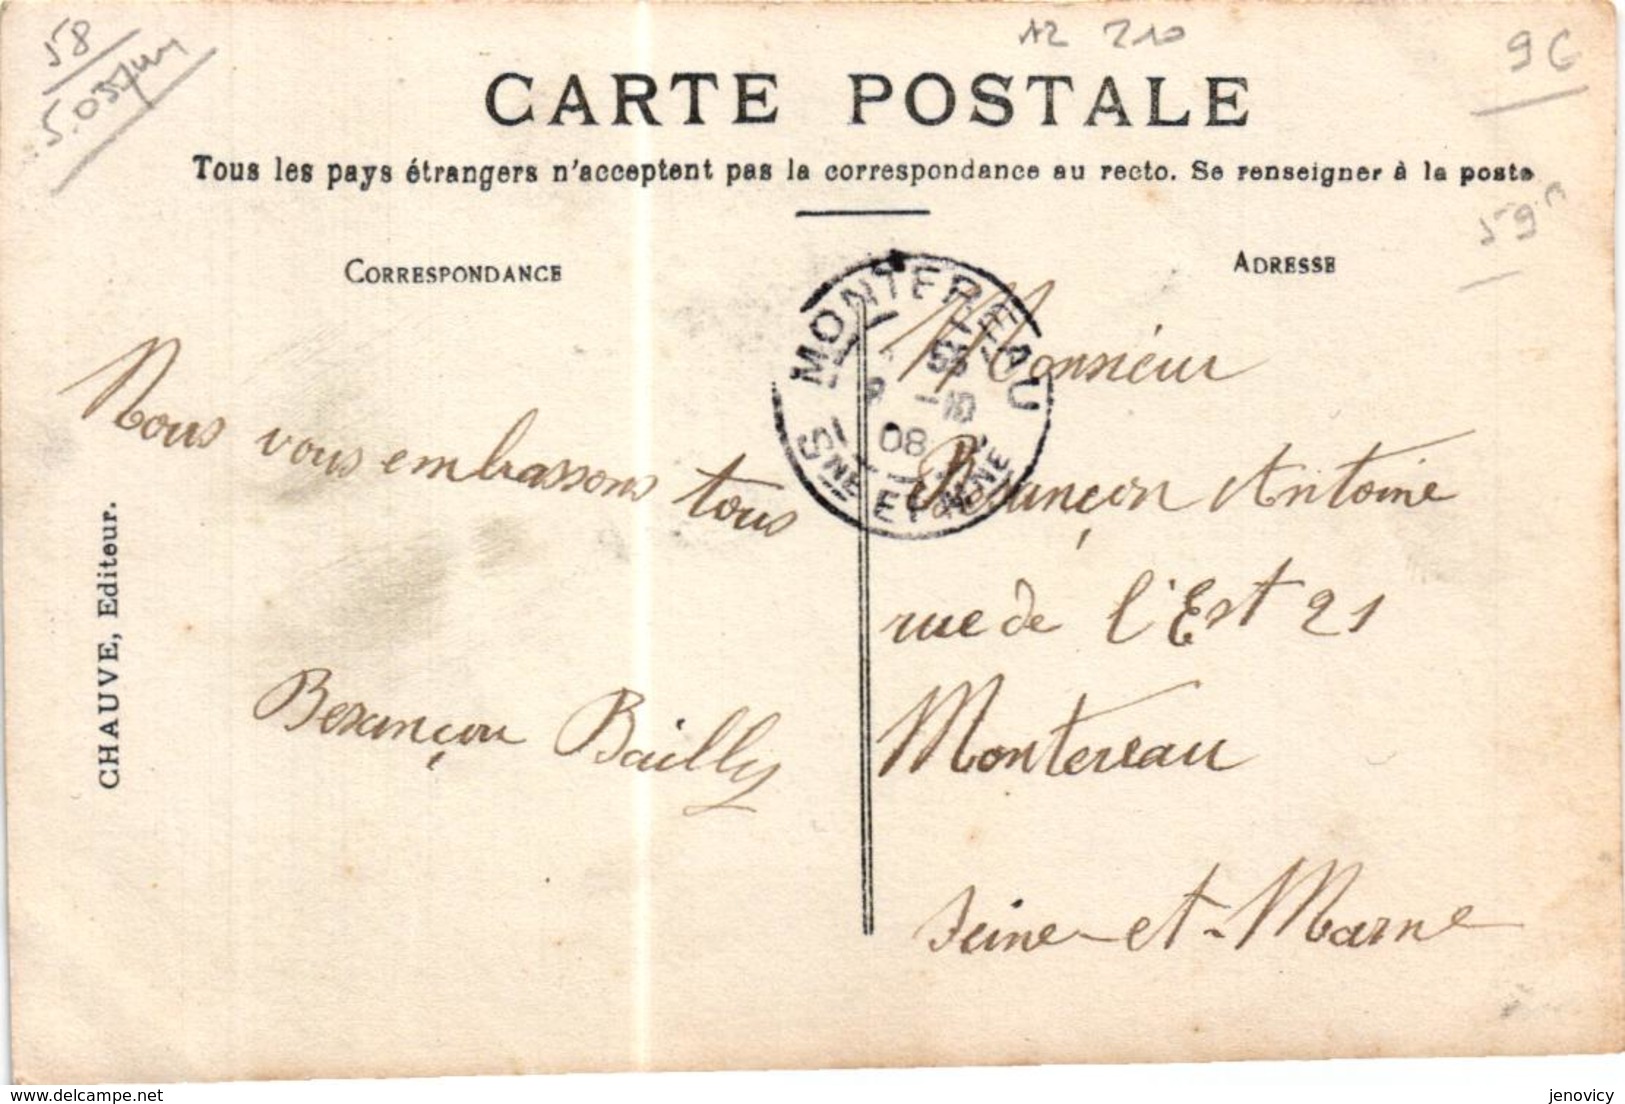 58
A2 210
96
CARTE POSTALE
Tous les pays étrangers n'acceptent pas la correspondance au recto. Se renseigner à la poste
59
CORRESPONDANCE
ADRESSE
MONTEREAU
08
SNE ET MNE
Nous vous embrassons tous
Bezançon Bailly
Monsieur
Bezançon Antoine
rue de l'Est 21
Montereau
Seine-et-Marne
CHAUVE, Editeur.
jenovicy